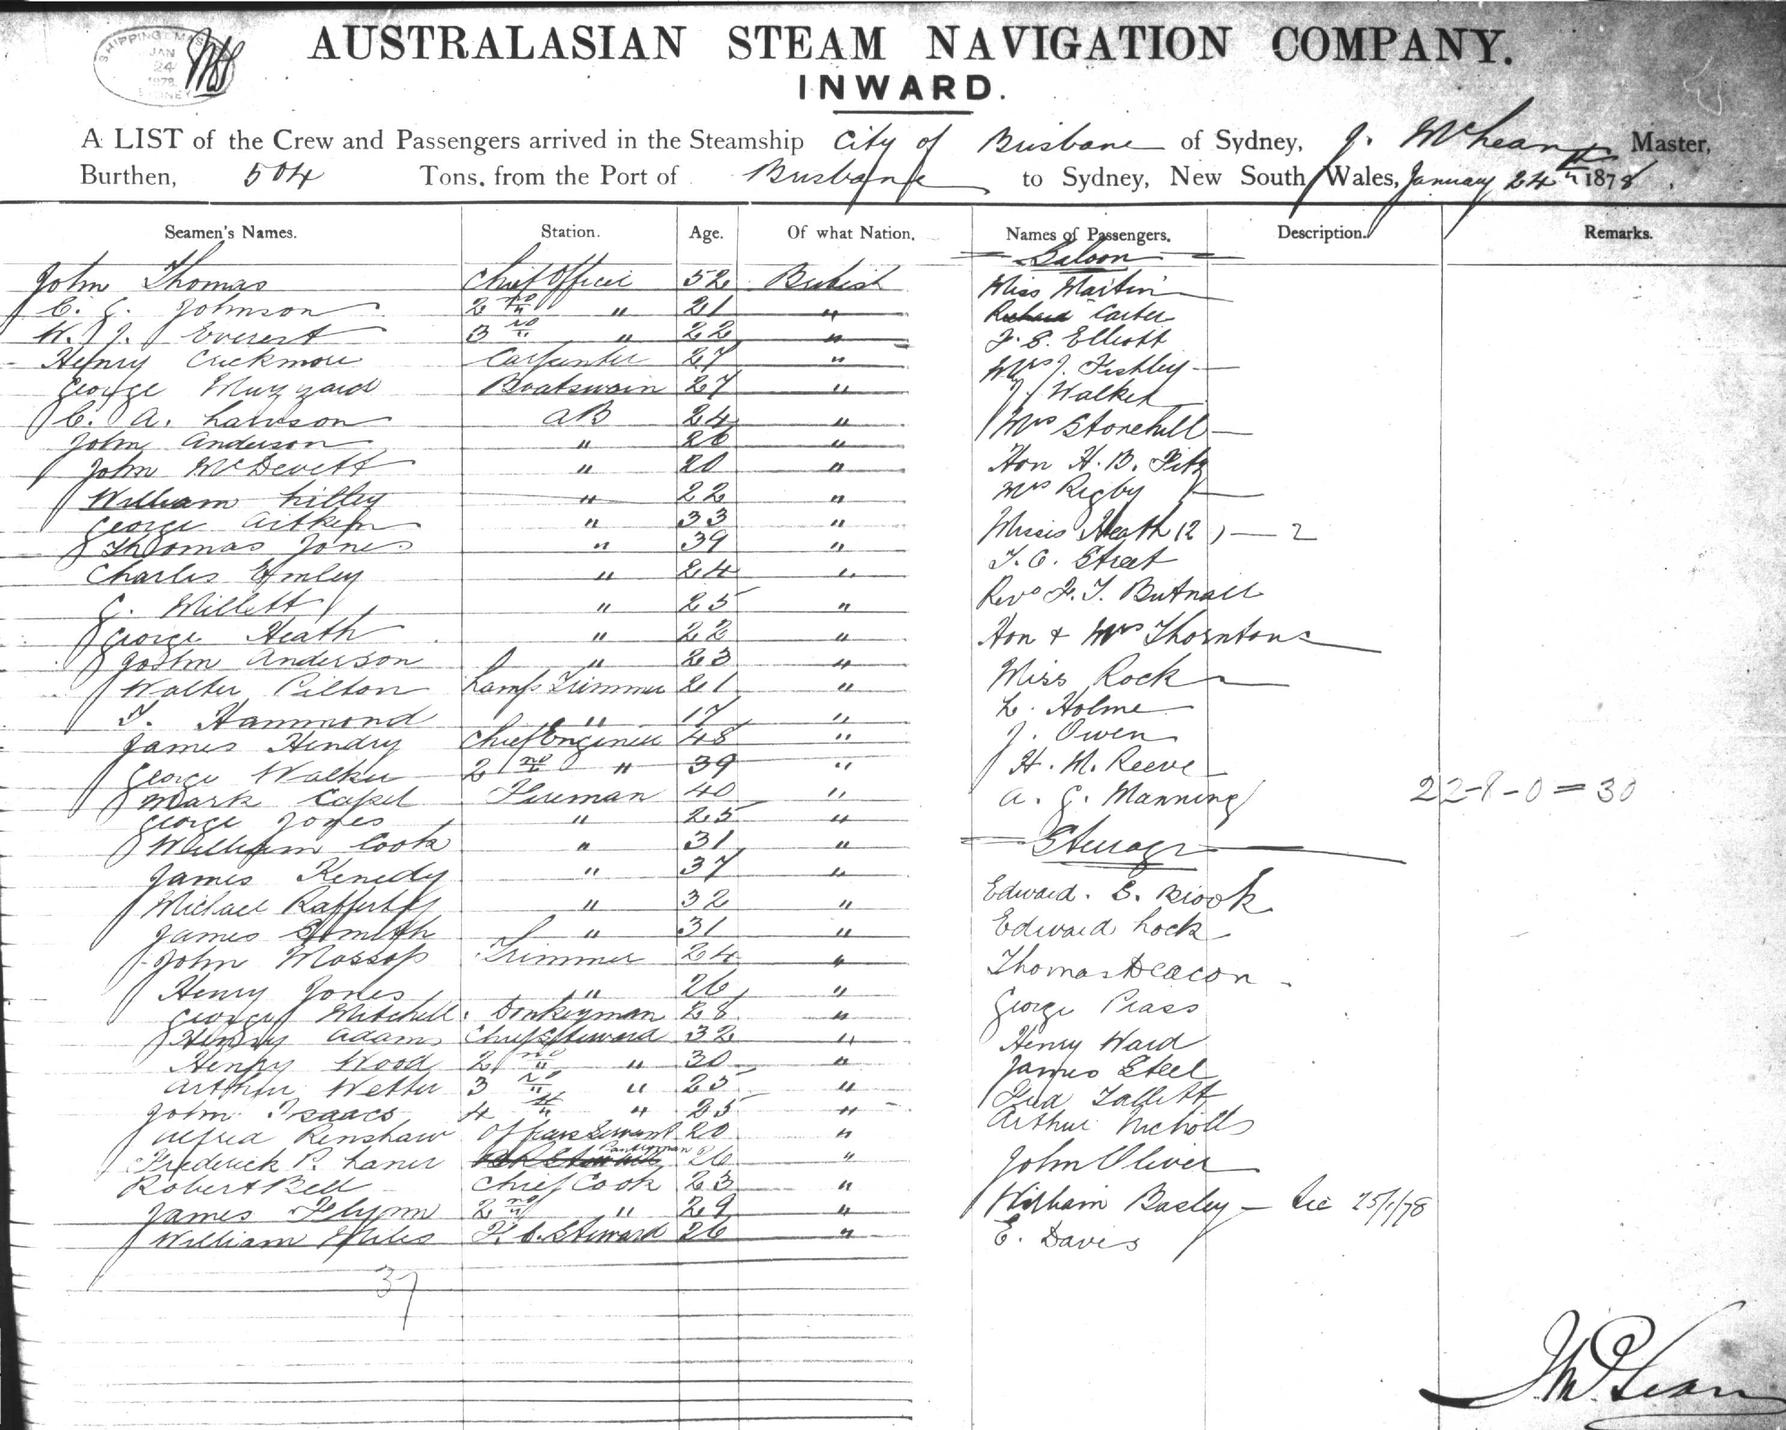 SHIPPING MAS
JAN
24
1878
SYDNEY
AUSTRALASIAN STEAM NAVIGATION COMPANY.
INWARD.
A LIST of the Crew and Passengers arrived in the Steamship City of Brisbane of Sydney, J. McLean Master,
Burthen, 504 Tons, from the Port of Brisbane to Sydney, New South Wales, January 24th 1878.
Seamen's Names. Station. Age. Of what Nation. Names of Passengers. Description. Remarks.
Saloon
John Thomas Chief Officer 52 British Miss Martin
C. G. Johnson 2nd " 21 " Carter
W. J. Everest 3rd " 22 " J. E. Elliott
Henry Crickmore Carpenter 27 " Mrs J. Fishley
George Muzzard Boatswain 27 " J. Walker
C. A. Lawson AB 24 " Mrs Stonehill
John Anderson " 26 "
John McDevett " 20 " Hon H. B. Fitz
William Lilley " 22 " Mrs Rigby
George Aitken " 33 "
Thomas Jones " 39 " Misses Heath (2) — 2
Charles Emley " 24 " T. C. Street
G. Millett " 25 " Revd F. T.
George Heath " 22 " Hon & Mrs Thornton
John Anderson " 23 "
Walter Pilton Lamp Trimmer 21 " Miss Rock
T. Hammond " 17 " L. Holme
James Hendry Chief Engineer 48 " J. Owen
George Walker 2nd " 39 " H. M. Reeve
Mark Capel Fireman 40 " A. G. Manning 22-8-0=30
George Jones " 25 "
William Cook " 31 " Steerage
James Kenedy " 37 "
Michael Rafferty " 32 " Edward. S. Brook
James Smith " 31 " Edward Lock
John Mossop Trimmer 24 " Thomas Deacon
Henry Jones " 26 "
George Mitchell Donkeyman 28 " George Prass
Henry Adams Chief Steward 32 " Henry Ward
Henry Wood 2nd " 30 " James Steel
Arthur Wetter 3rd " 25 " Fred Tallett
John Isaacs 4th " 25 " Arthur Nicholls
Alfred Renshaw Officers Servant 20 "
Frederick P. Laner Pantryman 26 " John Oliver
Robert Bell Chief Cook 23 "
James Flynn 2nd " 29 " William Basley — See 25/1/78
William Miles F. C. Steward 26 " E. Davis
37
J McLean